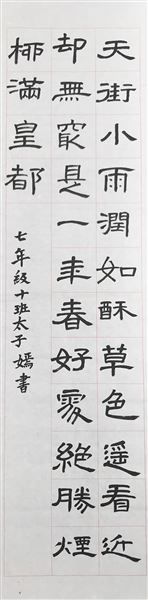 天街小雨潤如酥草色遙看近
却無最是一年春好處絕勝煙
柳滿皇都
七年級十班太子嫣書